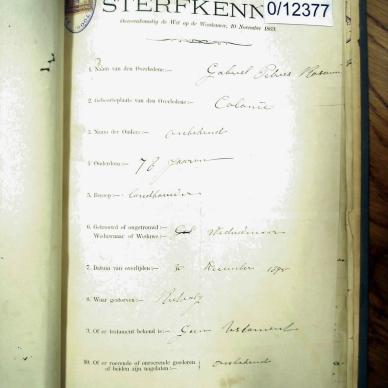 STERFKENN
0/12377
Overeenkomstig de Wet op de Weeskamer, 10 November 1893.
1. Naam van den Overledene:— Gabriel Petrus
2. Geboorteplaats van den Overledene:— Colonie
3. Namen der Ouders:— onbekend
4. Ouderdom:— 78 Jaaren
5. Beroep:— Landbouwer
6. Getrouwd of ongetrouwd Weduwnaar
Weduwnaar of Weduwe:—
7. Datum van overlijden:— December
8. Waar gestorven:—
9. Of er testament bekend is:— Geen Testament
10. Of er roerende of onroerende goederen onbekend
of beiden zijn nagelaten:—